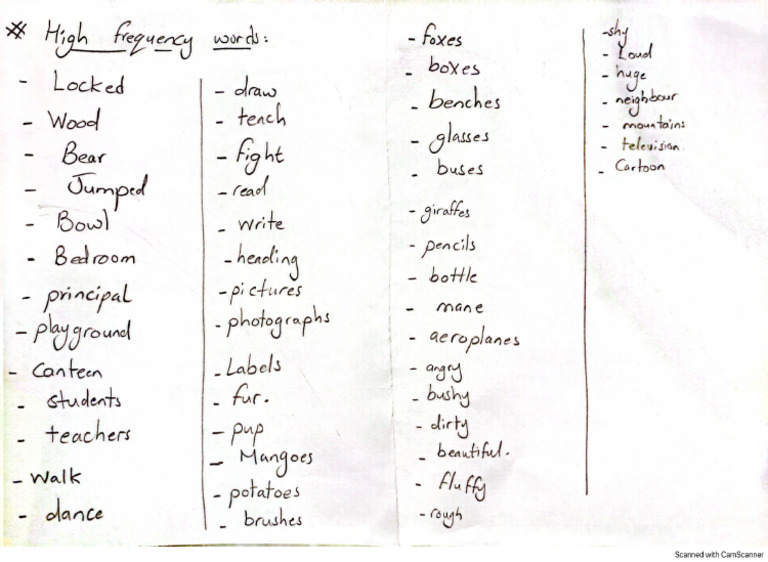 * High frequency words:
- Locked
- Wood
- Bear
- Jumped
- Bowl
- Bedroom
- principal
- playground
- Canteen
- students
- teachers
- walk
- dance
- draw
- teach
- fight
- read
- write
- heading
- pictures
- photographs
- Labels
- fur.
- pup
- Mangoes
- potatoes
- brushes
- foxes
- boxes
- benches
- glasses
- buses
- giraffes
- pencils
- bottle
- mane
- aeroplanes
- angry
- bushy
- dirty
- beautiful.
- fluffy
- rough
- shy
- Loud
- huge
- neighbour
- mountains
- television.
- Cartoon
Scanned with CamScanner